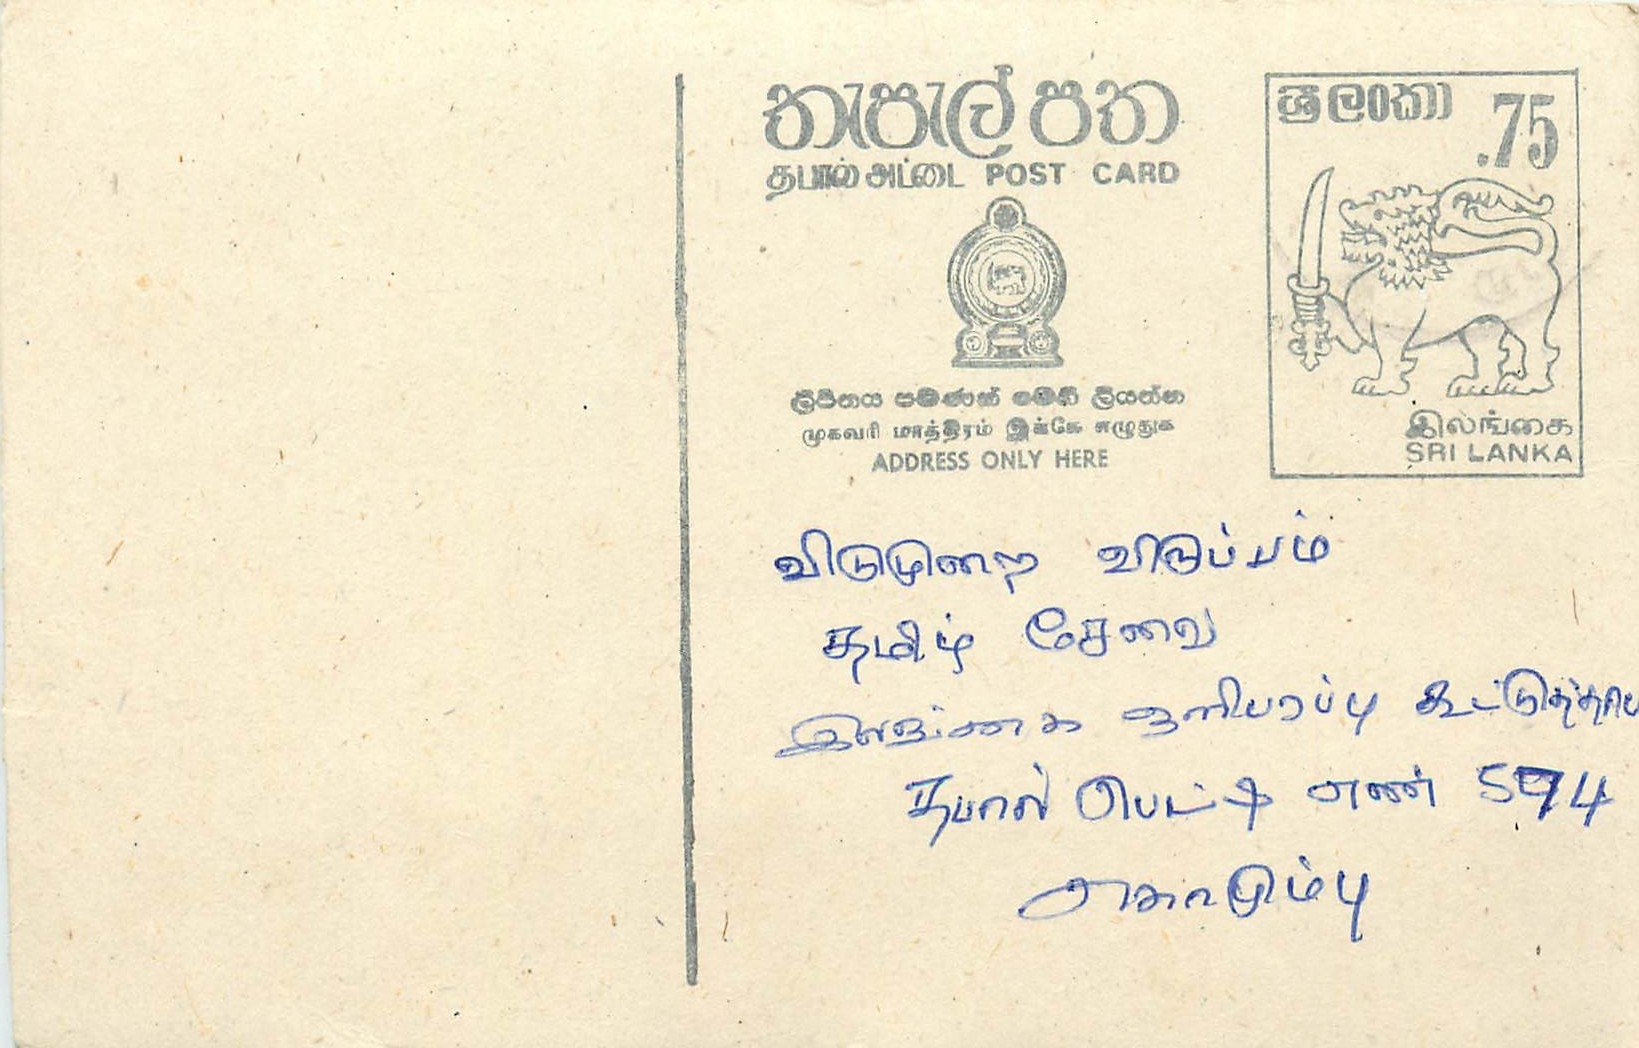 තැපැල් පත
தபால் அட்டை POST CARD
ලිපිනය පමණක් මෙහි ලියන්න
முகவரி மாத்திரம் இக்கே எழுதுக
ADDRESS ONLY HERE
ශ්‍රී ලංකා .75
இலங்கை
SRI LANKA
விடுமுறை விருப்பம்
தமிழ் சேவை
இலங்கை ஒளிபரப்பு கூட்டுத்தாப
தபால் பெட்டி எண் 574
கொழும்பு